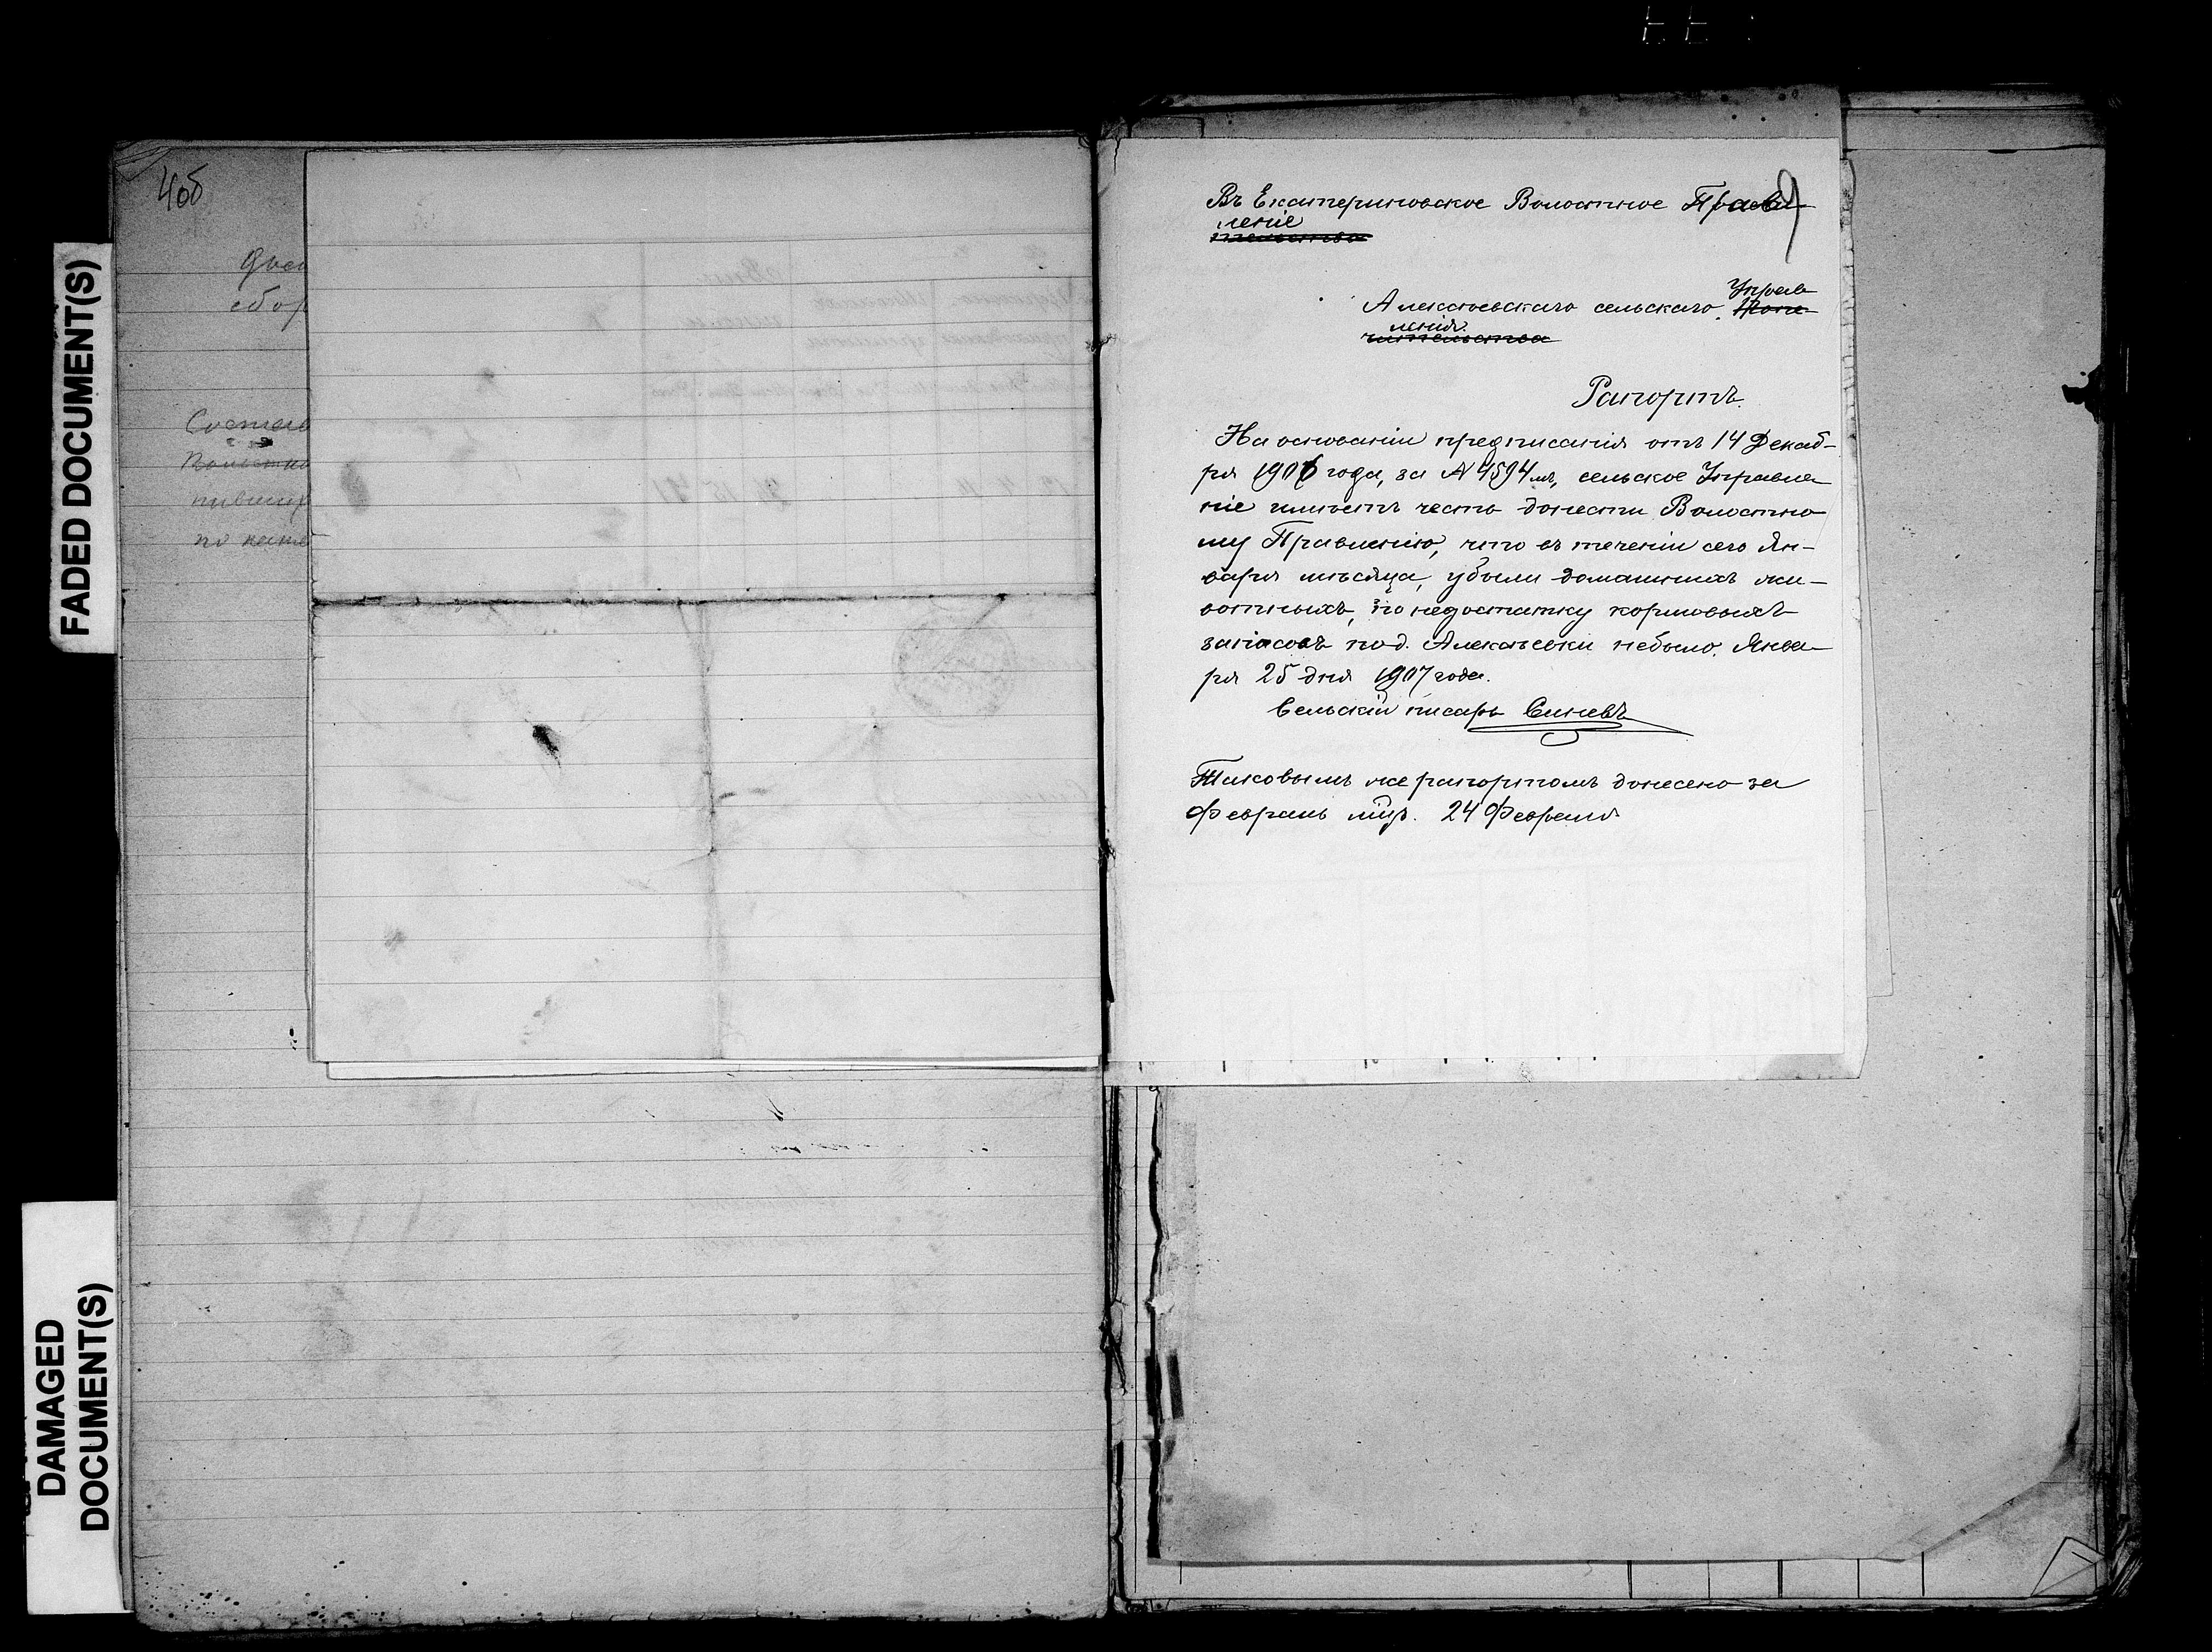 FADED DOCUMENT(S)
DAMAGED
DOCUMENT(S)
4об
сбор
Въ Екатериновское Волостное Прав
леніе
Алексѣевскаго сельскаго Управ
ленія
Рапортъ.
На основаніи предписанія отъ 14 Декаб-
ря 1906 года, за № 4594мъ, сельское Управле
ніе имѣетъ честь донести Волостно
му Правленію, что въ теченіи сего Ян-
варя мѣсяца, убыли домашнихъ жи-
вотныхъ, по недостатку кормовыхъ
запасовъ по д. Алексѣевки небыло. Янва
ря 25 дня 1907 года.
Сельскій писарь
Таковымъ же рапортомъ донесено за
Февраль мцъ. 24 Февраля